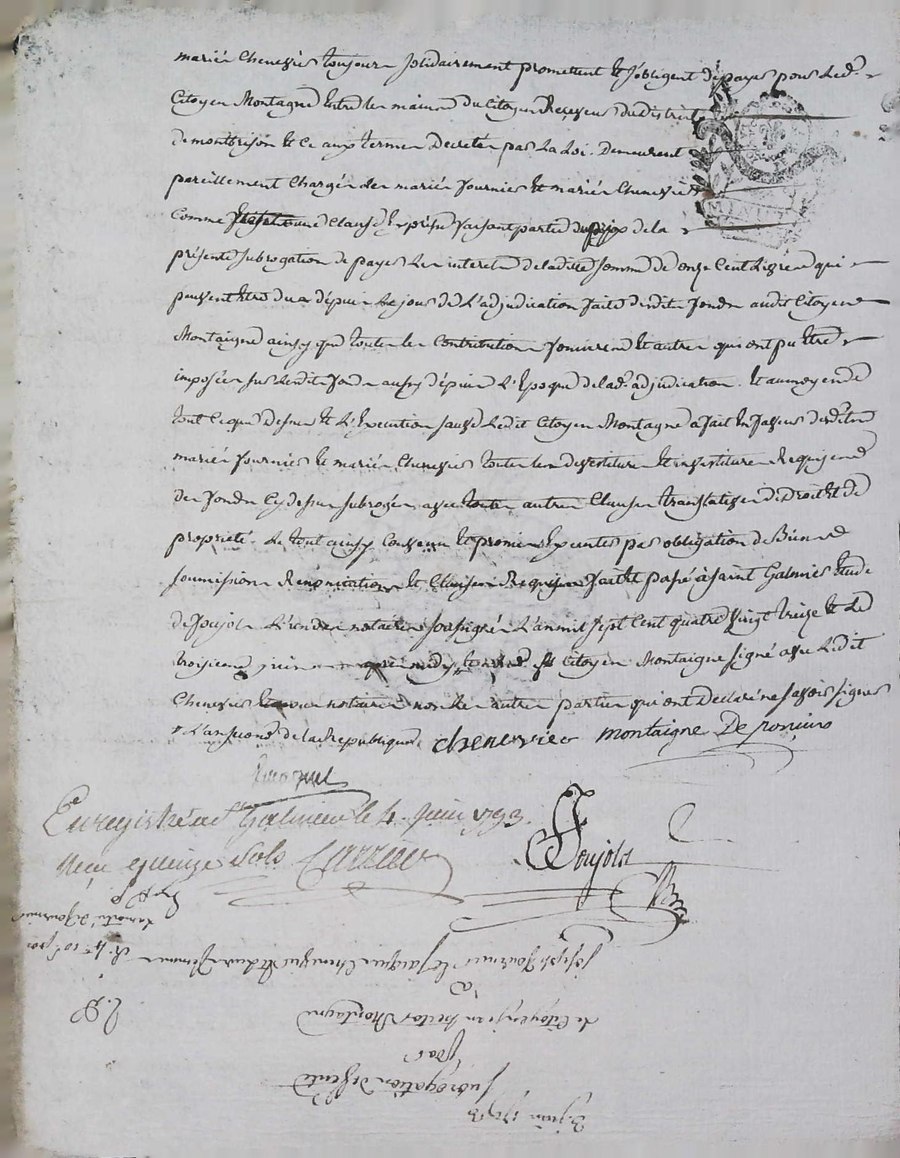 mariés Chenevier toujours solidairement promettent et s'obligent de payer pour led.
Citoyen Montagne entre les mains du Citoyen Receveur du district
de montbrison et ce aux termes decretés par la Loi. Demeurent
pareillement chargés les mariés fournier et mariés Chenevier
comme une clause expresse faisant partie du prix de la
présente subrogation de payer les interets de ladite somme de onze cent Livres qui
peuvent être dus depuis le jour de L'adjudication faite desdits fonds audit Citoyen
Montaigne ainsy que toutes les Contributions foncieres et autres qui ont pu être
imposées sur lesdits fonds aussy depuis L'Epoque de lad. adjudication. et au moyen de
tout ce que dessus et L'Execution sauve Ledit Citoyen Montagne a fait en faveur desdits
mariés fournier et mariés Chenevier toutes les devestitures et investitures Requises
des fonds cy dessus subrogés avec toutes autres Clauses translatives de Droit et de
proprieté. Le tout ainsy convenu et promis Executer par obligation de Biens
soumissions Renonciations et Clauses Requises fait et passé à Saint Galmier Etude
de Poujols L'un des notaires soussignés L'an mil sept cent quatre vingt treize et le
troisieme juin après midy Citoyen Montaigne signé avec Ledit
Chenevier et nous notaires non les autres parties qui ont Declaré ne savoir signer
L'an second de la Republique chenevier montaigne De poncins
Enregistré a St Galmier le 4. Juin 1793.
Reçu quinze sols
Poujols
3 juin 1793
Subrogation de vente
par
le Citoyen jean hector Montagne
a
joseph fournier et jacques Chenevier et leurs femmes